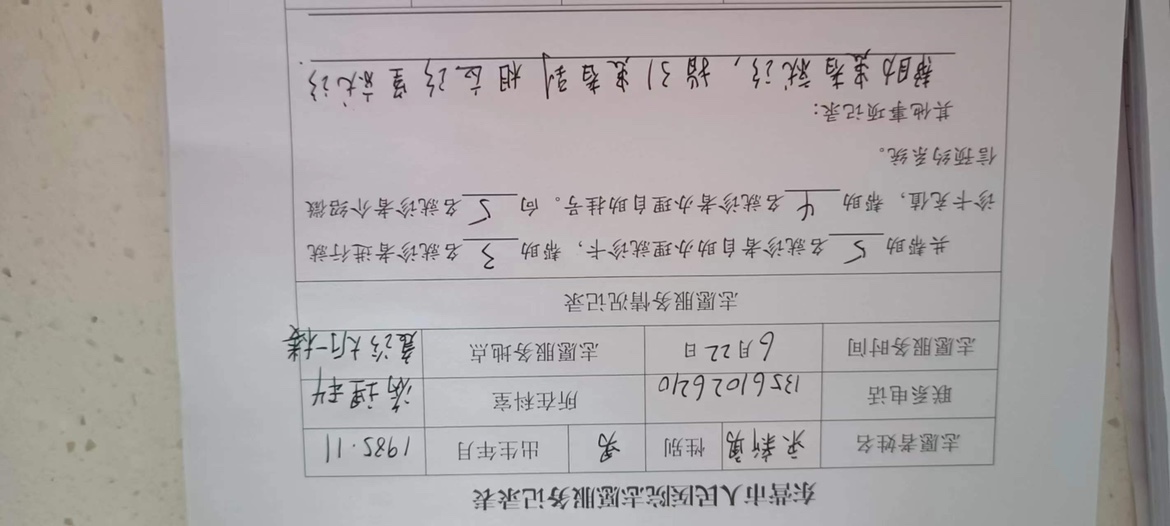 东营市人民医院志愿服务记录表
志愿者姓名 宋新勇 性别 男 出生年月 1985.11
联系电话 13561026240 所在科室 病理科
志愿服务时间 6月22日 志愿服务地点 急诊大厅一楼
志愿服务情况记录
共帮助 5 名就诊者自助办理就诊卡，帮助 3 名就诊者进行就
诊卡充值，帮助 4 名就诊者办理自助挂号。向 5 名就诊者介绍微
信预约系统。
其他事项记录：
帮助患者就诊，指引患者到相应诊室就诊.